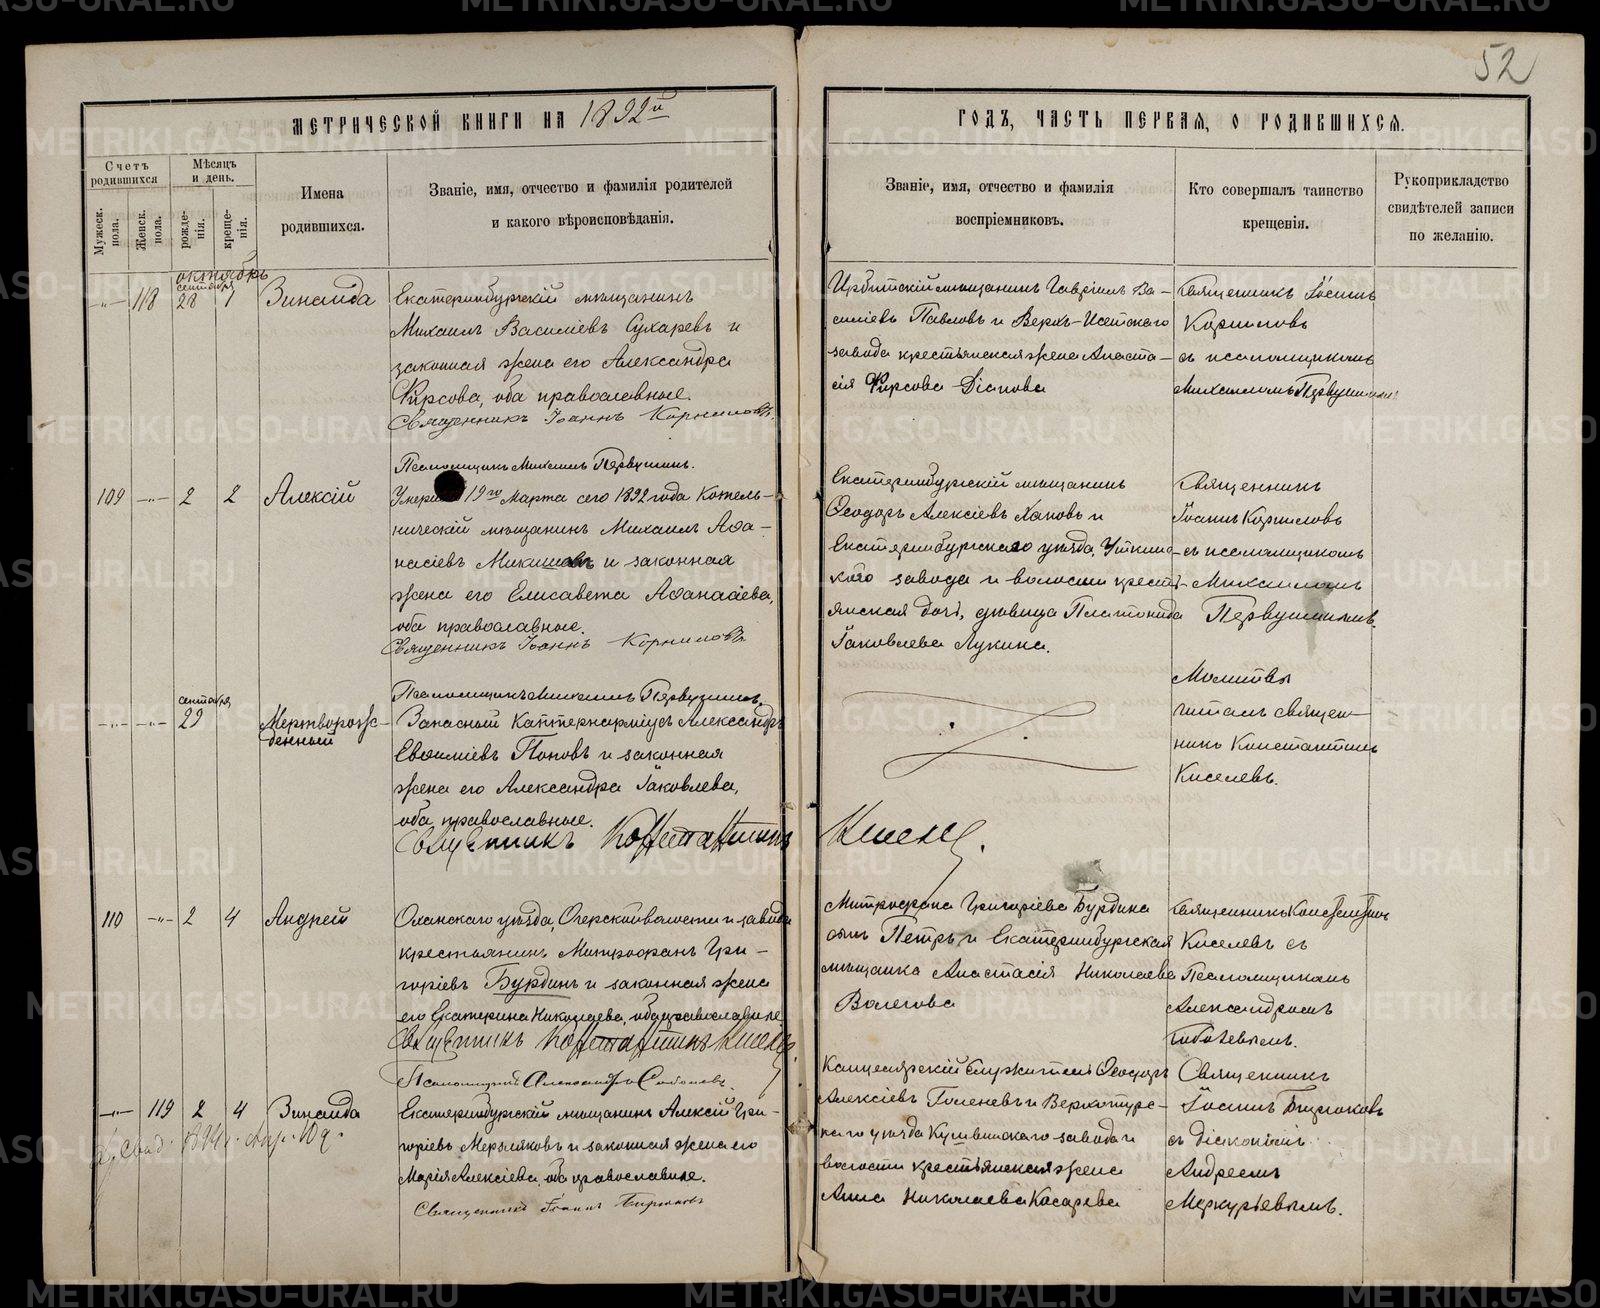 52
МЕТРИЧЕСКОЙ КНИГИ НА 1892й
ГОДЪ, ЧАСТЬ ПЕРВАЯ, О РОДИВШИХСЯ.
Счетъ родившихся
Мужеск. пола.
Женск. пола.
Мѣсяцъ и день.
рожденія.
крещенія.
Имена
родившихся.
Званіе, имя, отчество и фамилія родителей
и какого вѣроисповѣданія.
Званіе, имя, отчество и фамилія
воспріемниковъ.
Кто совершалъ таинство
крещенія.
Рукоприкладство
свидѣтелей записи
по желанію.
октябрь
сентября
-"- 118 28 1 Зинаида
Екатеринбургскій мѣщанинъ
Михаилъ Василіевъ Сухаревъ и
законная жена его Александра
Фирсова, оба православные.
Священникъ Іоаннъ Корниловъ.
Псаломщикъ Михаилъ Первушинъ.
Ирбитскій мѣщанинъ Гавріилъ Ва-
силіевъ Павловъ и Верхъ-Исетскаго
завода крестьянская жена Анаста-
сія Фирсова
Священникъ Іоаннъ
Корниловъ
съ псаломщикомъ
Михаиломъ Первушинымъ
109 -"- 2 2 Алексій
19го Марта сего 1892 года Котель-
ническій мѣщанинъ Михаилъ Аѳа-
насіевъ и законная
жена его Елисавета Аѳанасіева,
оба православные.
Священникъ Іоаннъ Корниловъ
Псаломщикъ Михаилъ Первушинъ.
Екатеринбургскій мѣщанинъ
Ѳеодоръ Алексіевъ и
Екатеринбургскаго уѣзда, Уткин-
скаго завода и волости крестъ-
янская дочь, дѣвица Платонида
Іаковлева Лукина.
Священникъ
Іоаннъ Корниловъ
съ псаломщикомъ
Михаиломъ
Первушинымъ.
сентября
-"- -"- 29
Мертворож-
денный
Запасный Каптенармусъ Александръ
Евѳиміевъ Поповъ и законная
жена его Александра Іаковлева,
оба православные.
Священникъ Константинъ Киселевъ.
Молитвы
читалъ священ-
никъ Константинъ
Киселевъ.
110 -"- 2 4 Андрей
Оханскаго уѣзда, Очерской волости и завода
крестьянинъ Митрофанъ Гри-
горіевъ Бурдинъ и законная жена
его Екатерина Николаева, оба православные
Священникъ Константинъ Киселевъ.
Псаломщикъ Александръ
Митрофана Григоріева Бурдина
сынъ Петръ и Екатеринбургская
мѣщанка Анастасія Николаева
Волегова
Священникъ Константинъ
Киселевъ съ
Псаломщикомъ
Александромъ
-"- 119 2 4 Зинаида
Екатеринбургскій мѣщанинъ Алексій Гри-
горіевъ Мерзляковъ и законная жена его
Марія Алексіева, оба православные.
Священникъ Іоаннъ Бирюковъ
Канцелярскій служитель Ѳеодоръ
Алексіевъ и Верхотурс-
каго уѣзда Кушвинскаго завода и
волости крестьянская жена
Анна Николаева Косарева
Священникъ
Іоаннъ Бирюковъ
съ діакономъ
Андреемъ
Меркурьевымъ.
METRIKI.GASO-URAL.RU